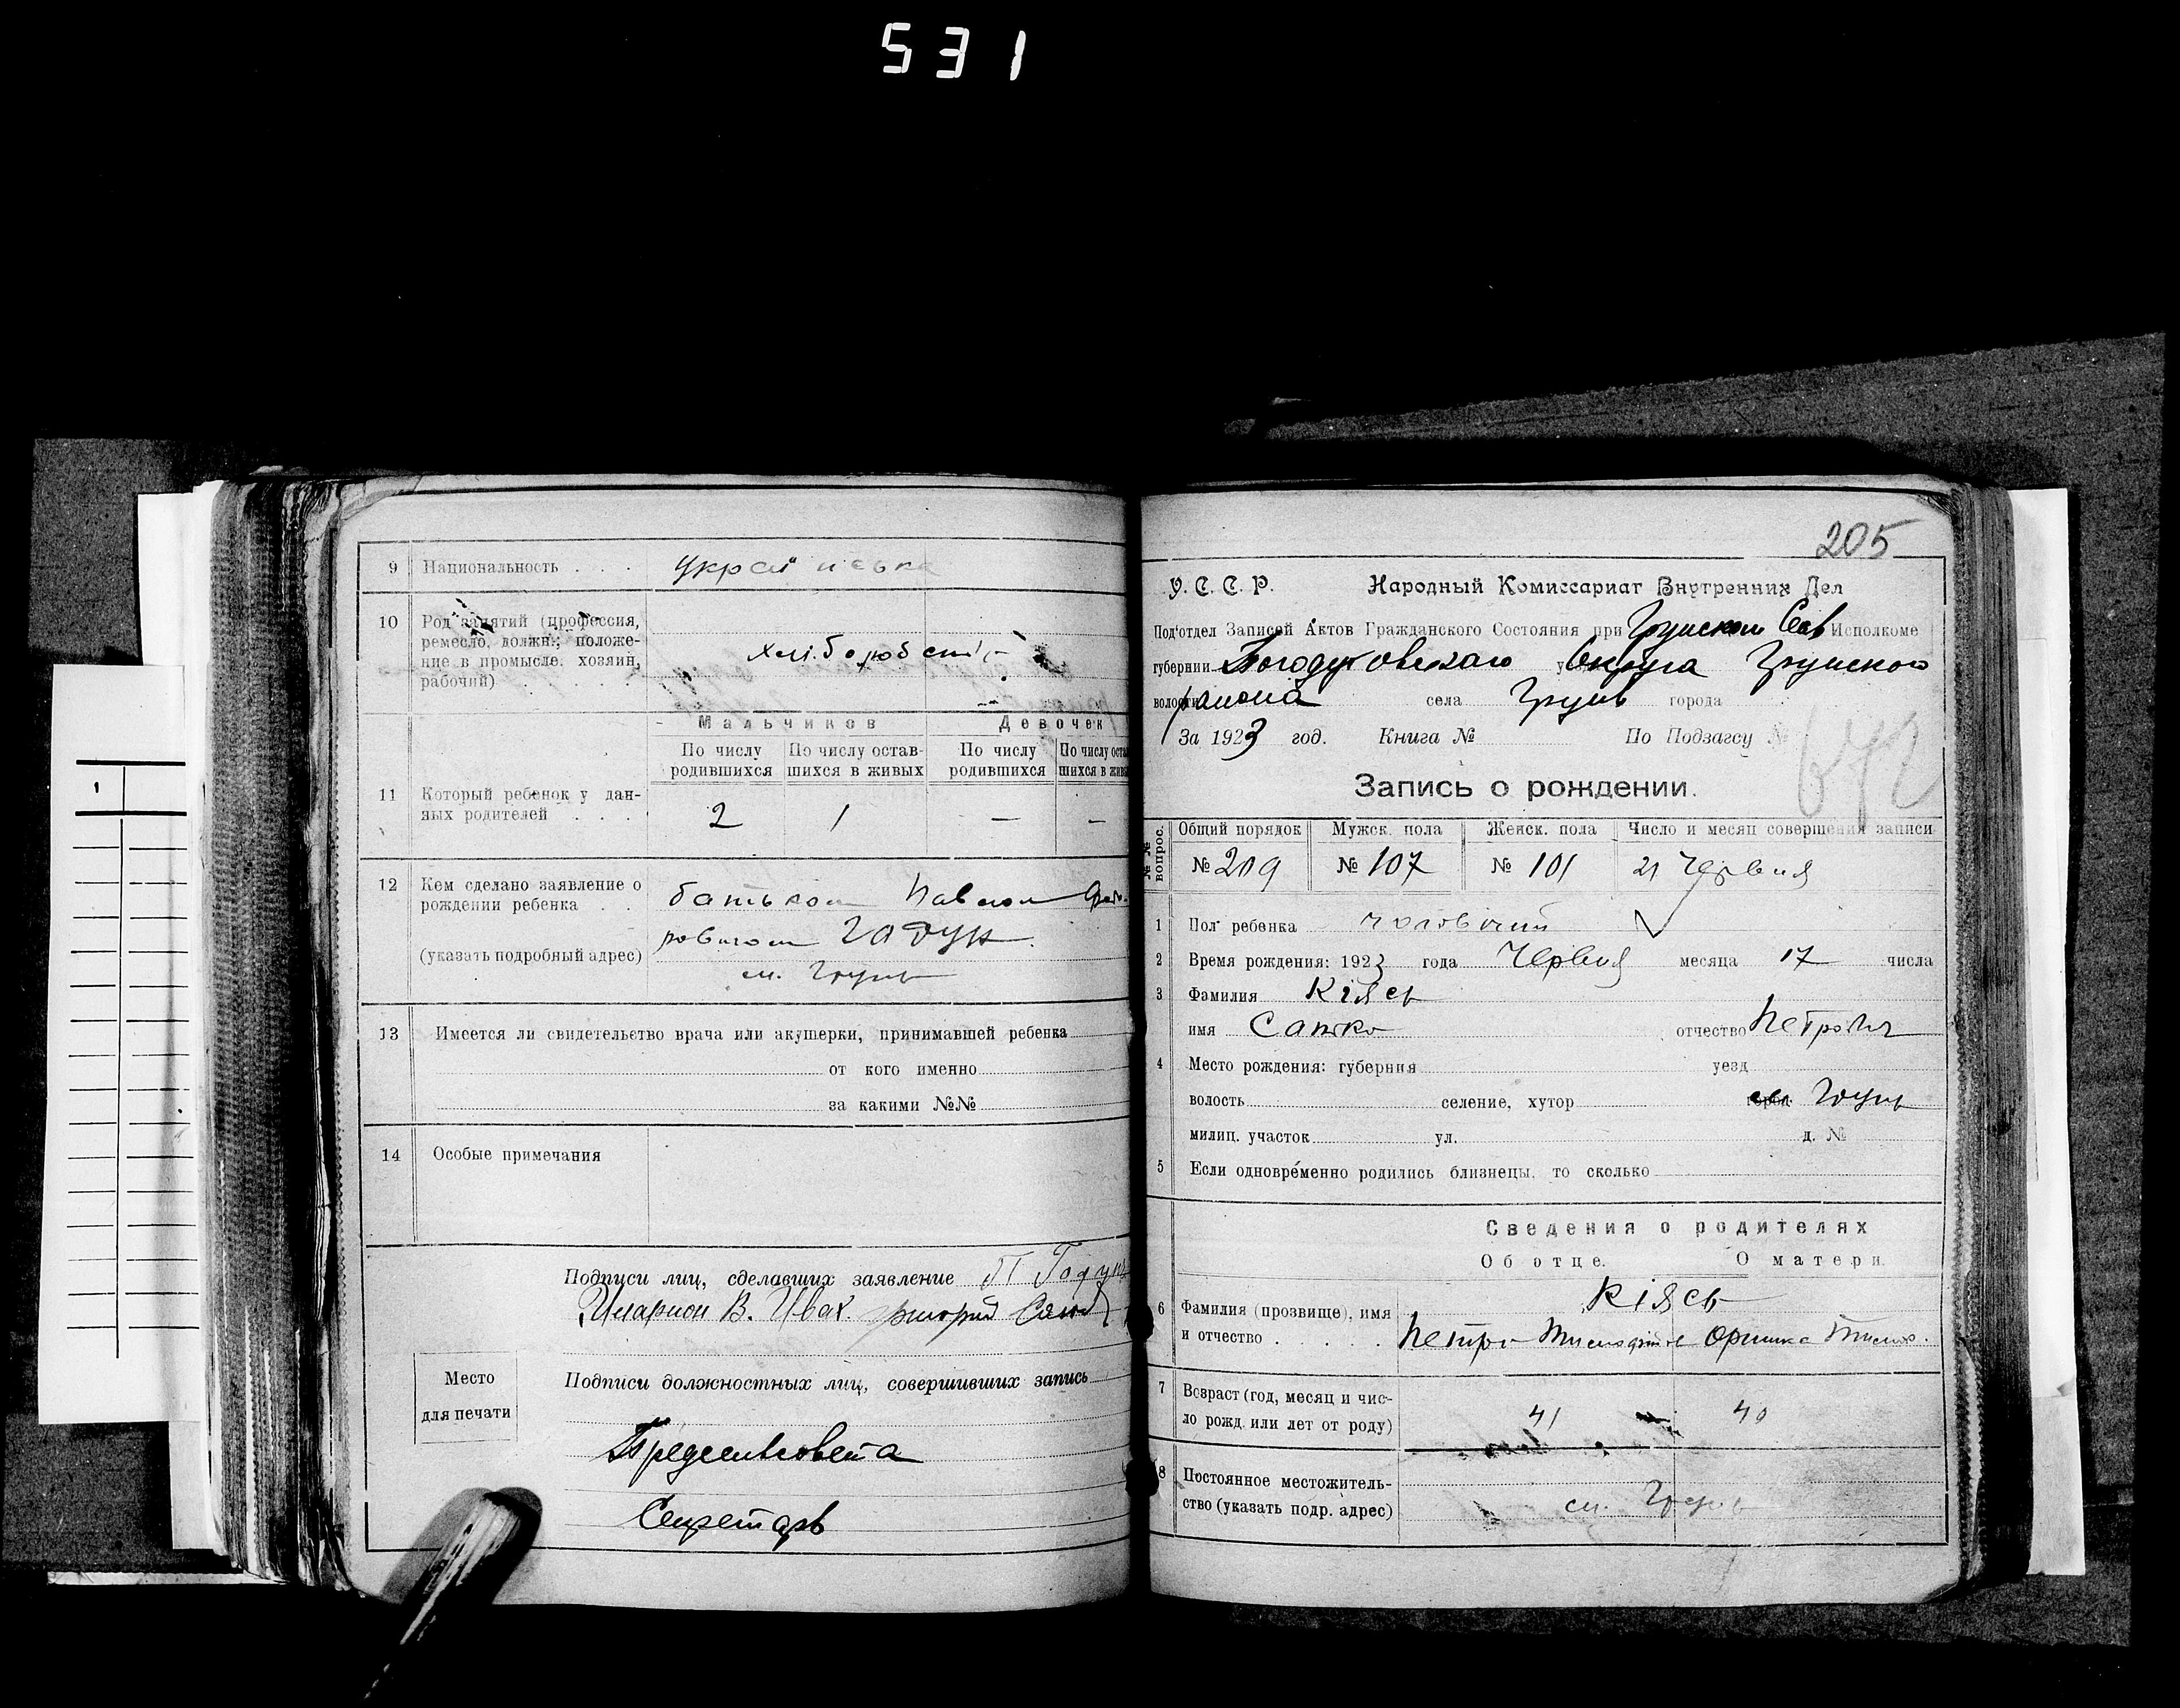 531
9 Национальность . . . Украӥнська
10 Род занятий (профессия,
ремесло, должн.; положе-
ние в промысле. хозяин,
рабочий) . . . . . .
хліборобств
Мальчиков Девочек
По числу родившихся По числу остав-шихся в живых По числу родившихся По числу оста шихся в жив
11 Который ребенок у дан-
ных родителей . . . 2 1 — —
12 Кем сделано заявление о
рождении ребенка . . батьком Павлом
(указать подробный адрес) ровичом Годун
см. Грунь
13 Имеется ли свидетельство врача или акушерки, принимавшей ребенка
от кого именно
за какими №№
14 Особые примечания
Подписи лиц, сделавших заявление П Годун
Иларион В. Ивах. Григорий
Место
для печати
Подписи должностных лиц, совершивших запись
Предсельсовета
Секретарь
205
У. С. С. Р. Народный Комиссариат Внутренних Дел
Под'отдел Записей Актов Гражданского Состояния при Грунском Исполкоме
губернии Богодуховского у Округа Грунского
волости района села Грунь города
За 1923 год. Книга № По Подзагсу №
672
Запись о рождении.
№№ вопрос. Общий порядок Мужск. пола Женск. пола Число и месяц совершения записи
№ 209 № 107 № 101 21 Червня
1 Пол ребенка чоловічий
2 Время рождения: 1923 года Червня месяца 17 числа
3 Фамилия Кіясь
имя Сашко отчество Петрович
4 Место рождения: губерния уезд
волость селение, хутор город см Грунь
милиц. участок ул. д. №
5 Если одновременно родились близнецы, то сколько
Сведения о родителях
Об отце. О матери.
Кіясь
6 Фамилия (прозвище), имя
и отчество . . . . . Петро Оришка
7 Возраст (год, месяц и чис-
ло рожд. или лет от роду) 41 40
8 Постоянное местожитель-
ство (указать подр. адрес) см. Грунь
1